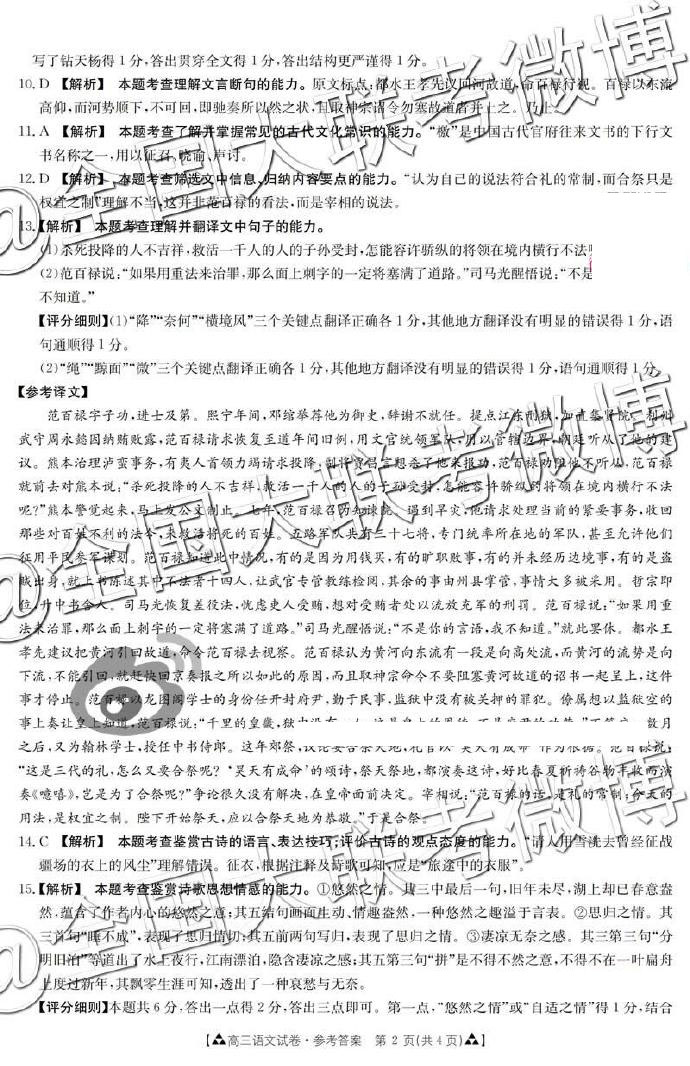 写了钻天杨得1分,答出贯穿全文得1分,答出结构更严谨得1分。
10. D 【解析】 本题考查理解文言断句的能力。原文标点:都水王孝先议回河故道,命百禄行视。百禄以东流
高仰,而河势顺下,不可回,即驰奏所以然之状,且取神宗诏令勿塞故道者并上之。乃止。
11. A 【解析】 本题考查了解并掌握常见的古代文化常识的能力。“檄”是中国古代官府往来文书的下行文
书名称之一,用以征召、晓谕、声讨。
12. D 【解析】 本题考查筛选文中信息、归纳内容要点的能力。“认为自己的说法符合礼的常制,而合祭只是
权宜之制”理解不当,这并非范百禄的看法,而是宰相的说法。
13.【解析】 本题考查理解并翻译文中句子的能力。
(1)杀死投降的人不吉祥,救活一千人的人的子孙受封,怎能容许骄纵的将领在境内横行不法
(2)范百禄说:“如果用重法来治罪,那么面上刺字的一定将塞满了道路。”司马光醒悟说:“不是
不知道。”
【评分细则】(1)“降”“奈何”“横境风”三个关键点翻译正确各1分,其他地方翻译没有明显的错误得1分,语
句通顺得1分。
(2)“绳”“黥面”“微”三个关键点翻译正确各1分,其他地方翻译没有明显的错误得1分,语句通顺得1分。
【参考译文】
范百禄字子功,进士及第。熙宁年间,邓绾举荐他为御史,辞谢不就任。提点江东刑狱,加直集贤院。利州
武守周永懿因纳贿败露,范百禄请求恢复至道年间旧例,用文官统领军队,用以管辖边界,朝廷听从了他的建
议。熊本治理泸蛮事务,有夷人首领力竭请求投降,副将贾昌言想杀了他来报功,范百禄劝阻他不听从,范百禄
就前去对熊本说:“杀死投降的人不吉祥,救活一千人的人的子孙受封,怎能容许骄纵的将领在境内横行不法
呢?”熊本警觉起来,马上发公文制止。七年,范百禄召为知谏院。遇到旱灾,他请求处理当前的紧要事务,收回
那些对百姓不利的法令,来救活将死的百姓。五路军队共有三十七将,专门统率所在地的军队,甚至允许他们
征用平民参军谋划。范百禄知道此中情况,有的是因为用钱买,有的旷职败事,有的并未经历边境事,有的是盗
贼出身,就上书陈述其中不法者十四人,让武官专管教练检阅,其余的事由州县掌管,事情大多被采用。哲宗即
位,升中书舍人。司马光恢复差役法,忧虑吏人受贿,想对受贿者处以流放充军的刑罚。范百禄说:“如果用重
法来治罪,那么面上刺字的一定将塞满了道路。”司马光醒悟说:“不是你的言语,我不知道。”就此罢休。都水王
孝先建议把黄河引回故道,命令范百禄去视察。范百禄认为黄河向东流有一段是向高处流,而黄河的流势是向
下流,不能引回,就赶快回京奏报之所以如此的原因,而且取神宗命令不要阻塞黄河故道的诏书一起呈上,这件
事才停止。范百禄以龙图阁学士的身份任开封府尹,勤于民事,监狱中没有被关押的罪犯。僚属想以监狱空的
事上奏让皇上知道,范百禄说:“千里的皇畿,狱中没有
之后,又为翰林学士,授任中书侍郎。这年郊祭,议论要合祭天地,礼官以“昊天有成命”作为根据。范百禄说:
“这是三代的礼,怎么又要合祭呢?‘昊天有成命’的颂诗,祭天祭地,都演奏这诗,好比春夏祈祷谷物丰收而演
奏《噫嘻》,岂是为了合祭呢?”争论很久没有解决,在皇帝面前决定。宰相说:“范百禄的话,是礼的常制;今天的
用法,是权宜之制。陛下开始祭天,应以合祭天地为恭敬。”于是合祭。
14. C 【解析】 本题考查鉴赏古诗的语言、表达技巧,评价古诗的观点态度的能力。“请人用雪洗去曾经征战
疆场的衣上的风尘”理解错误。征衣,根据注释及诗歌可知,应是“旅途中的衣服”。
15.【解析】 本题考查鉴赏诗歌思想情感的能力。①悠然之情。其三中最后一句,旧年未尽,湖上却已春意盎
然,蕴含了作者内心的悠然之意;其五结句画面生动,情趣盎然,一种悠然之趣溢于言表。②思归之情。其
三首句“睡不成”,表现了思归情切;其五前两句写归,表现了思归之情。③凄凉无奈之感。其三第三句“分
明旧泊”等道出了水上夜行,江南漂泊,隐含凄凉之感;其五第三句“拼”是不得不然之意,不得不在一叶扁舟
上度过新年,其飘零生涯可知,透出了一种哀愁与无奈。
【评分细则】本题共6分,答出一点得2分,答出三点即可。第一点,“悠然之情”或“自适之情”得1分,结合
【高三语文试卷·参考答案 第2页(共4页)】
@全国大联考微博
@全国大联考微博
@全国大联考微博